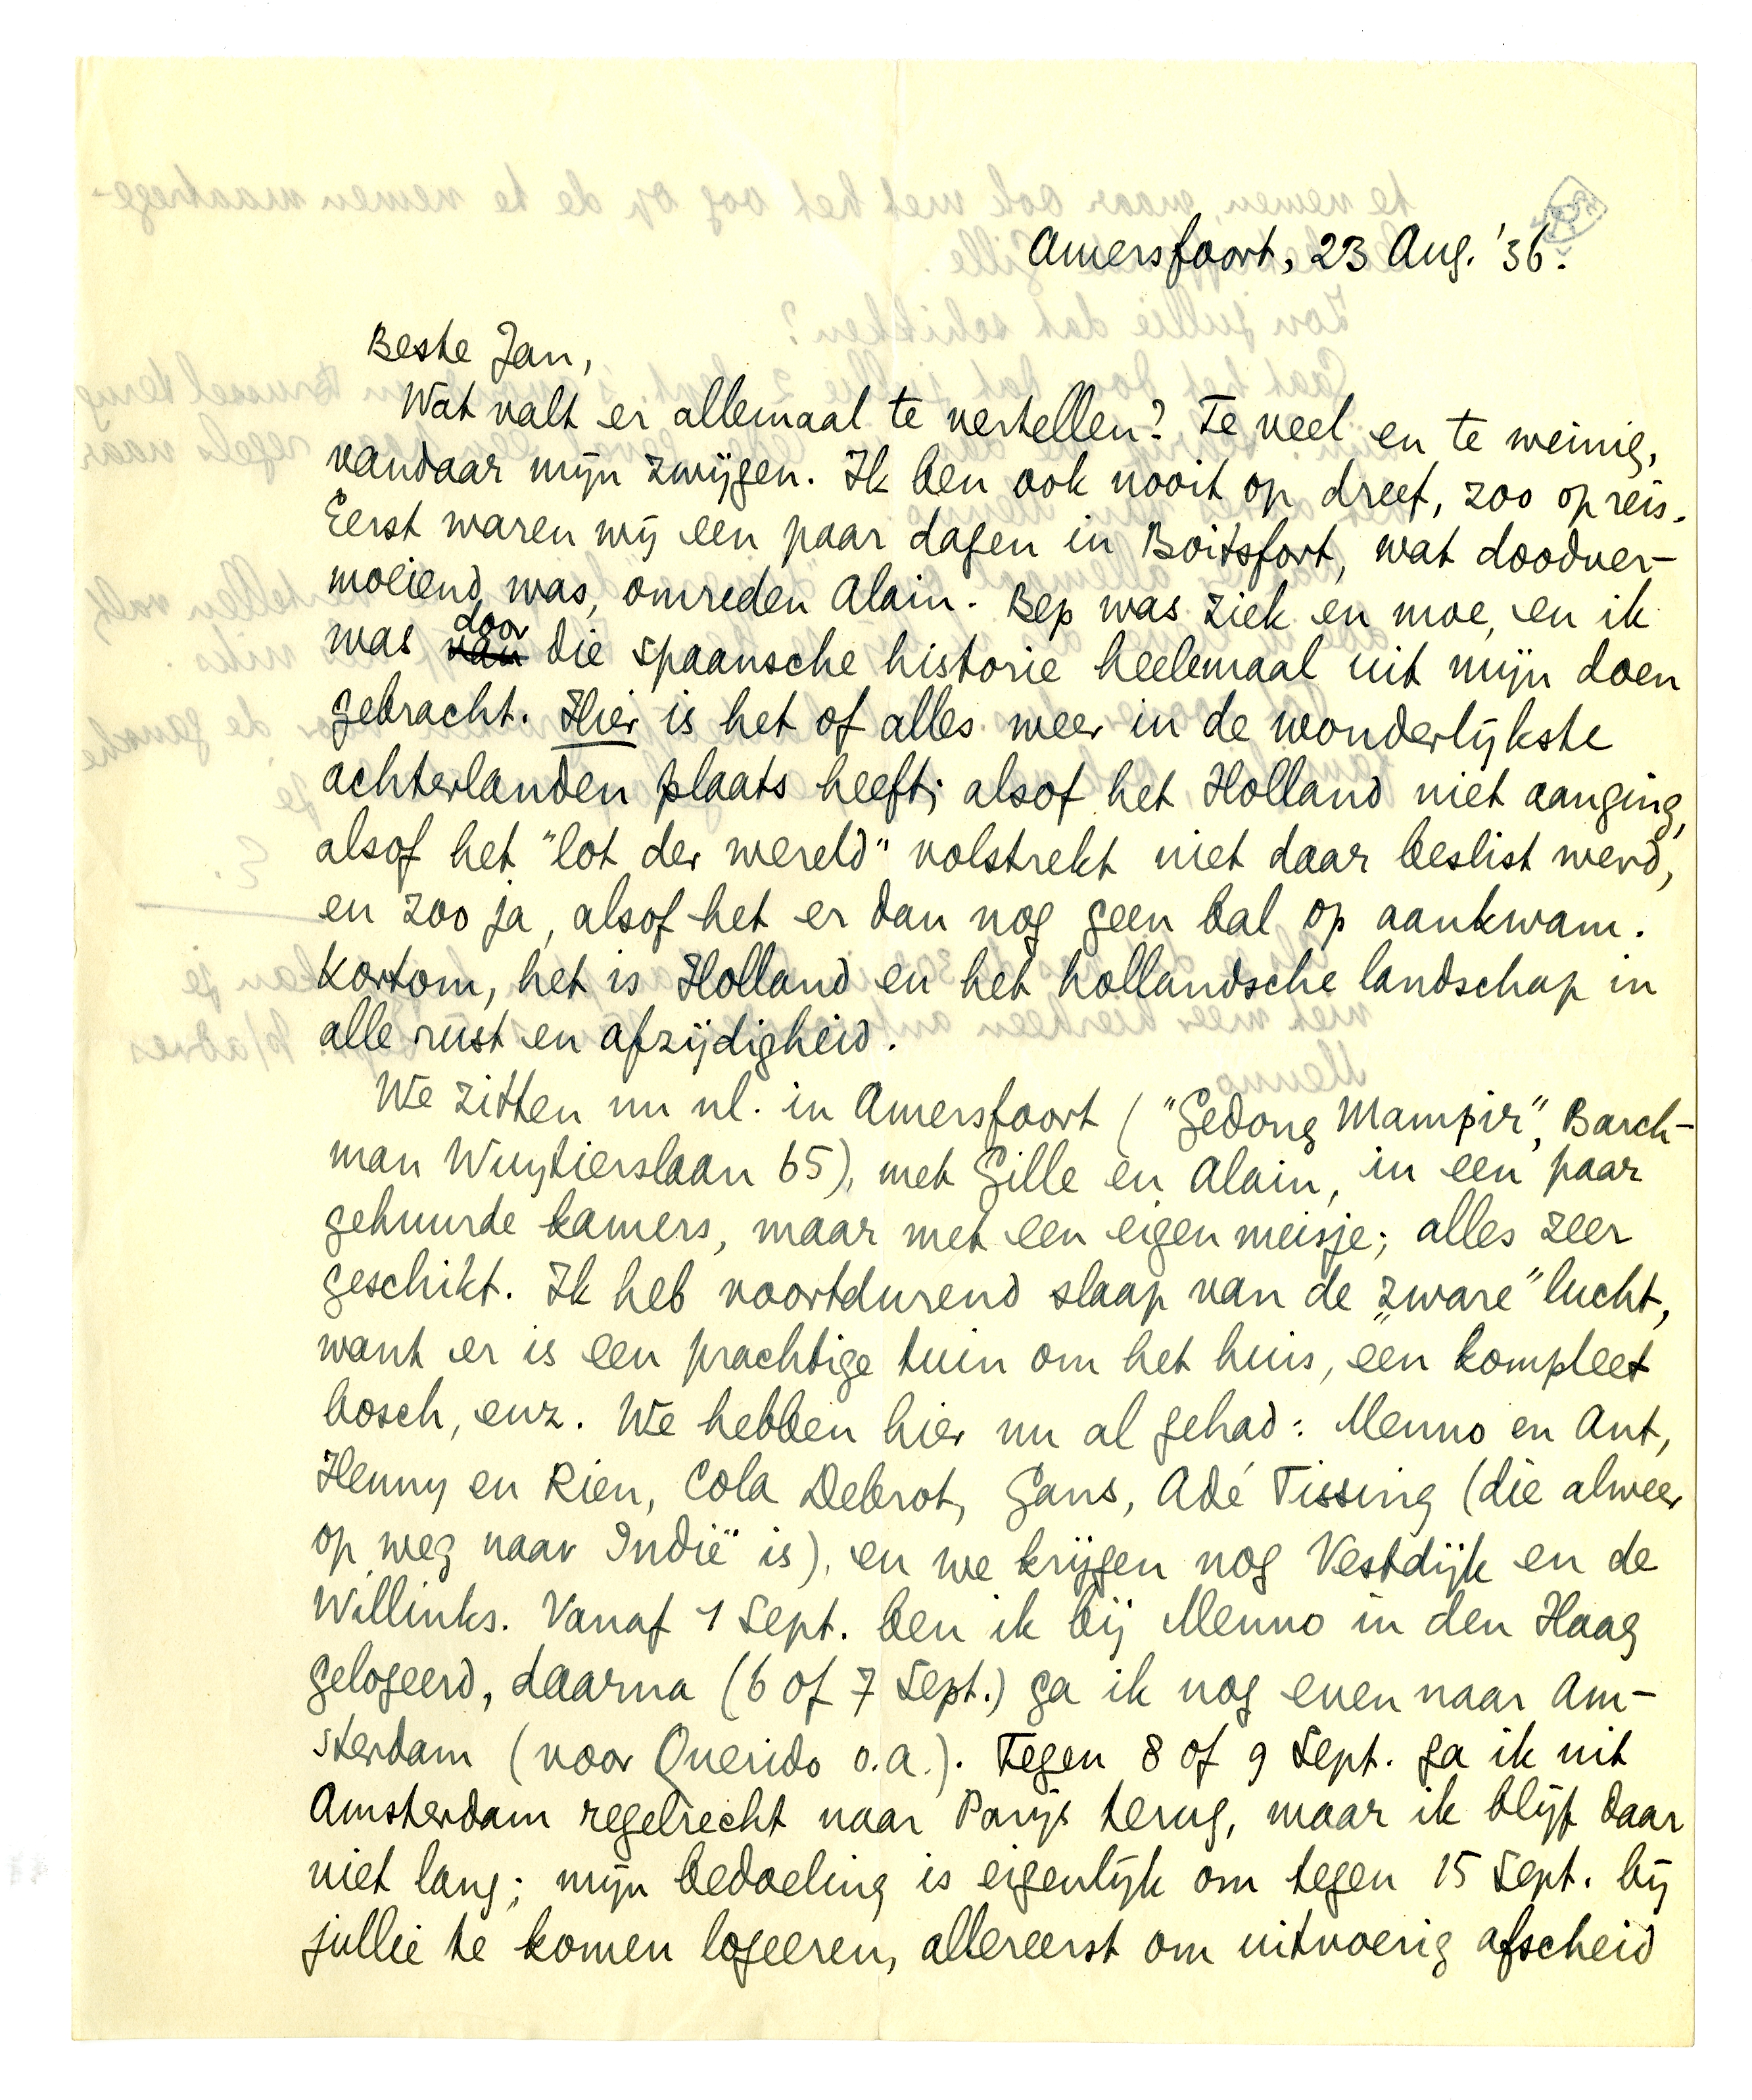 Amersfoort, 23 Aug. '36.
Beste Jan,
Wat valt er allemaal te vertellen? Te veel en te weinig,
vandaar mijn zwijgen. Ik ben ook nooit op dreef, zoo op reis.
Eerst waren wij een paar dagen in Boitsfort, wat doodver-
moeiend was, omreden Alain. Bep was ziek en moe, en ik
was van door die spaansche historie heelemaal uit mijn doen
gebracht. Hier is het of alles weer in de wonderlijkste
achterlanden plaats heeft; alsof het Holland niet aanging,
alsof het "lot der wereld" volstrekt niet daar beslist werd,
en zoo ja, alsof het er dan nog geen bal op aankwam.
Kortom, het is Holland en het hollandsche landschap in
alle rust en afzijdigheid.
We zitten nu nl. in Amersfoort ("Gedong Mampir", Barch-
man Wuytierslaan 65), met Gille en Alain, in een paar
gehuurde kamers, maar met een eigen meisje; alles zeer
geschikt. Ik heb voortdurend slaap van de „zware" lucht,
want er is een prachtige tuin om het huis, een kompleet
bosch, enz. We hebben hier nu al gehad: Menno en Ant,
Henny en Rien, Cola Debrot, Gans, Adé Tissing (die alweer
op weg naar Indië is), en we krijgen nog Vestdijk en de
Willinks. Vanaf 1 Sept. ben ik bij Menno in den Haag
gelogeerd, daarna (6 of 7 Sept.) ga ik nog even naar Am-
sterdam (voor Querido o.a.). Tegen 8 of 9 Sept. ga ik uit
Amsterdam regelrecht naar Parijs terug, maar ik blijf daar
niet lang; mijn bedoeling is eigenlijk om tegen 15 Sept. bij
jullie te komen logeeren, allereerst om uitvoerig afscheid